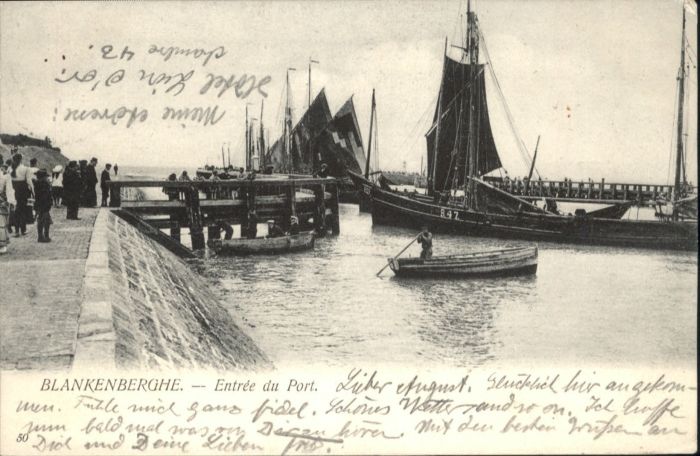 Meine Adresse:
Hôtel Lion d'or.
chambre 42.
B.42
BLANKENBERGHE. — Entrée du Port. Lieber August. Glücklich hier angekom-
men. Fühle mich ganz fidel. Schönes Wetter and so on. Ich hoffe
zum bald mal was von hören. Mit den besten Grüßen an
50 Dich und Deine Lieben